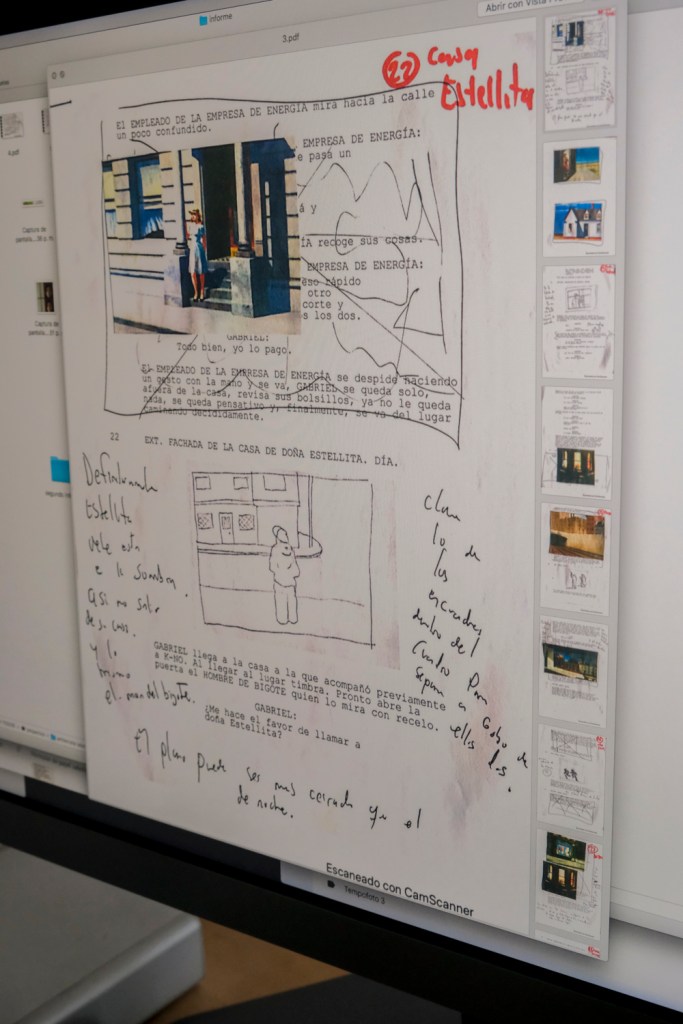 informe
Abrir con Vista
3.pdf
22 Casa
Estellita
El EMPLEADO DE LA EMPRESA DE ENERGÍA mira hacia la calle
un poco confundido.
EMPRESA DE ENERGÍA:
e pasá un
á y
ÍA recoge sus cosas.
EMPRESA DE ENERGÍA:
eso rápido
otro
corte y
s los dos.
GABRIEL:
Todo bien, yo lo pago.
El EMPLEADO DE LA EMPRESA DE ENERGÍA se despide haciendo
un gesto con la mano y se va, GABRIEL se queda solo,
afuera de la casa, revisa sus bolsillos, ya no le queda
nada, se queda pensativo y, finalmente, se va del lugar
caminando decididamente.
22 EXT. FACHADA DE LA CASA DE DOÑA ESTELLITA. DÍA.
Estellita
sombra.
Asi no sale
de su casa.
y lo
mismo
el man del bigote.
lo de
los
encuadres
dentro del
cuadro Para
separar a Gabo de
ellos dos.
GABRIEL llega a la casa a la que acompañó previamente
a K-NO. Al llegar al lugar timbra. Pronto abre la
puerta el HOMBRE DE BIGOTE quien lo mira con recelo.
GABRIEL:
¿Me hace el favor de llamar a
doña Estellita?
El plano puede ser mas cerrado ya q el
de noche.
Escaneado con CamScanner
Tempofoto 3
4.pdf
Captura de
pantalla
Captura de